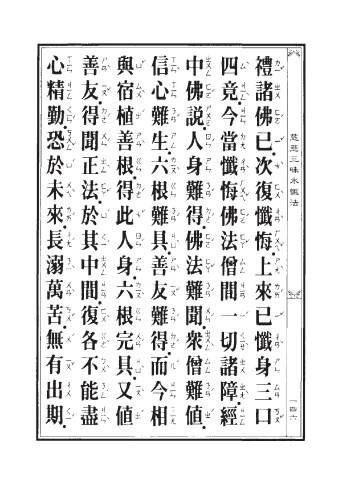 慈悲三昧水懺法
一四六
禮諸佛已。次復懺悔。上來已懺身三口
四竟。今當懺悔佛法僧間一切諸障。經
中佛說。人身難得。佛法難聞。眾僧難值。
信心難生。六根難具。善友難得。而今相
與宿植善根。得此人身。六根完具。又值
善友。得聞正法。於其中間。復各不能盡
心精勤。恐於未來。長溺萬苦。無有出期。